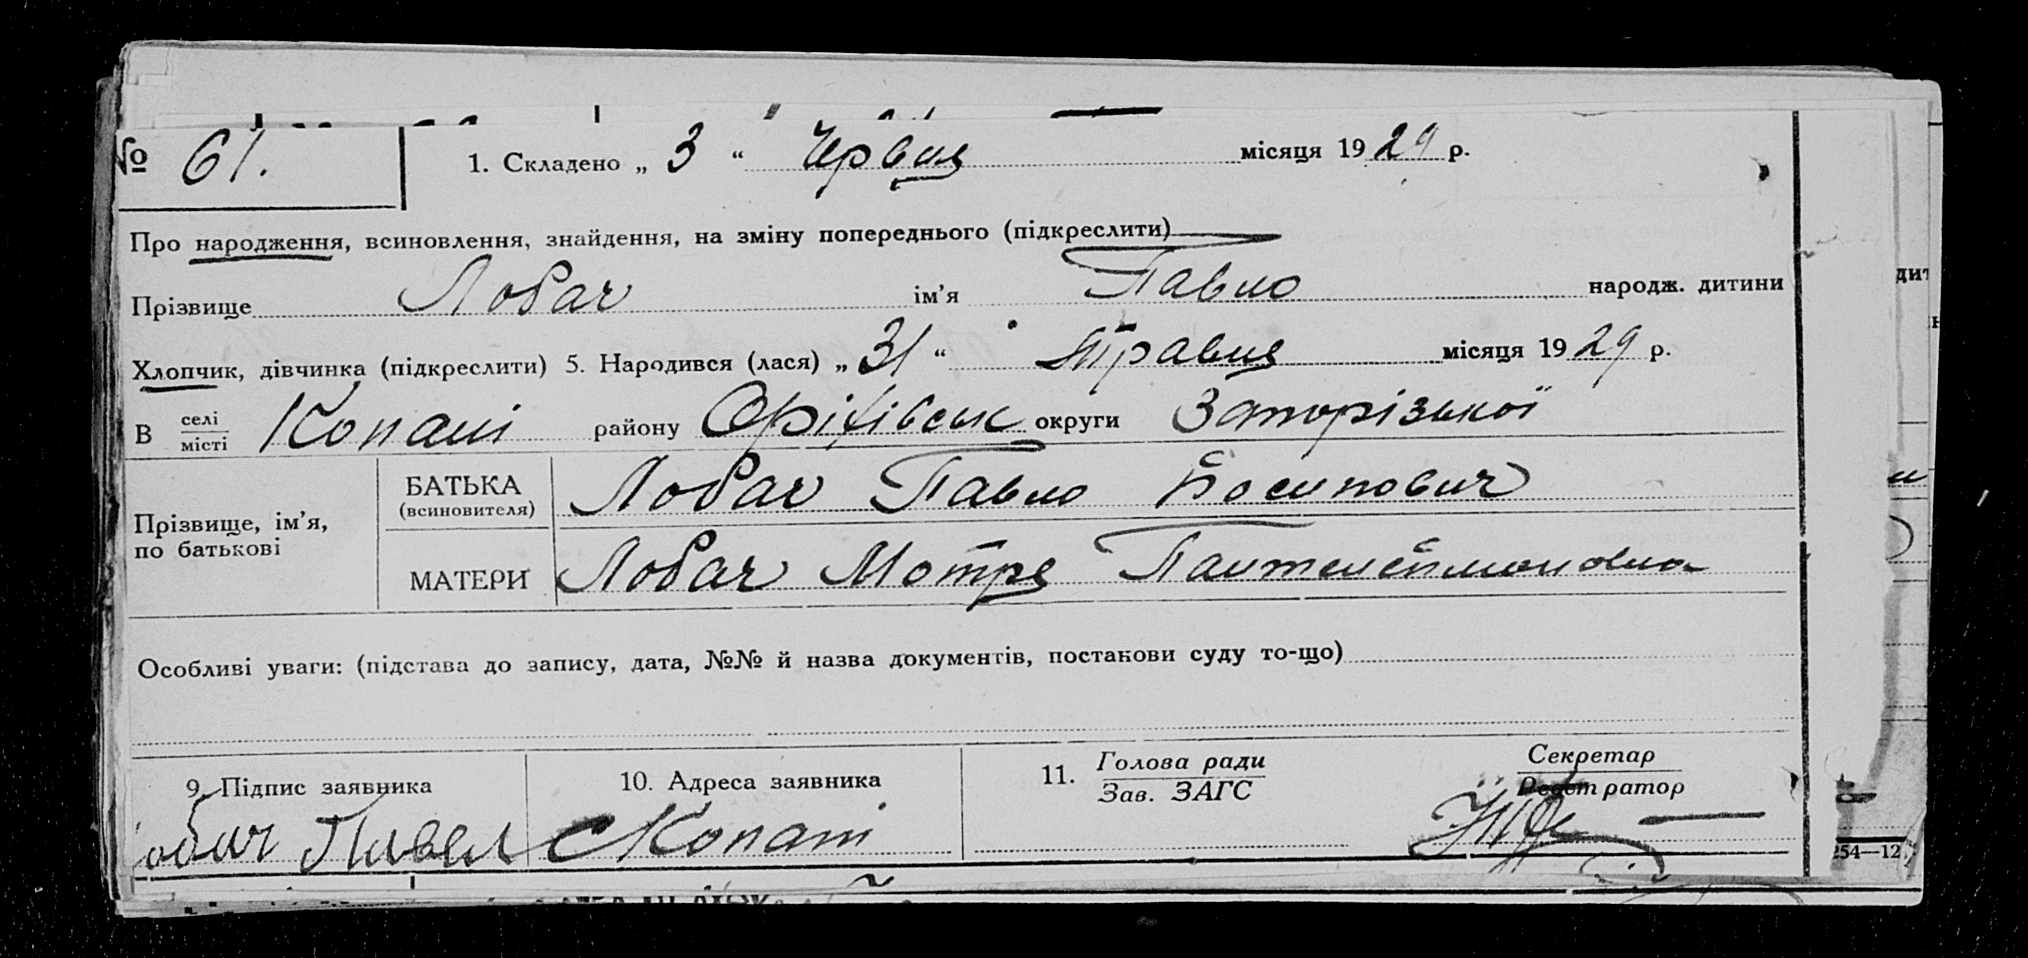 № 61. 1. Складено „ 3 “ Червня місяця 1929 р.
Про народження, всиновлення, знайдення, на зміну попереднього (підкреслити)
Прізвище Лобач ім’я Павло народж. дитини
Хлопчик, дівчинка (підкреслити) 5. Народився (лася) „ 31 “ травня місяця 1929 р.
В селі
місті Копані району Оріхівськ округи Запорізької
Прізвище, ім’я,
по батькові
БАТЬКА
(всиновителя)
Лобач Павло Йосипович
МАТЕРИ Лобач Мотря Пантелеймоновна
Особливі уваги: (підстава до запису, дата, №№ й назва документів, постанови суду то-що)
9. Підпис заявника 10. Адреса заявника 11. Голова ради
Зав. ЗАГС
Секретар
Реєстратор
обач Павел с Копані
254—12